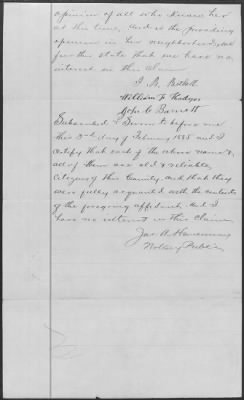 opinion of all who knew her
at the time, and is the prevailing
opinion in her neighborhood, and
further state that we have no
interest in this claim
J. B. Birdett
William F. Rodgers
John C. Barnett
Subscribed & Sworn to before me
this 3rd day of February 1888 and I
certify that each of the above named
all of them are old & reliable
citizens of this County, and that they
were fully acquainted with the contents
of the foregoing affidavit. And I
have no interest in this claim
Jas. A.
Notary Public